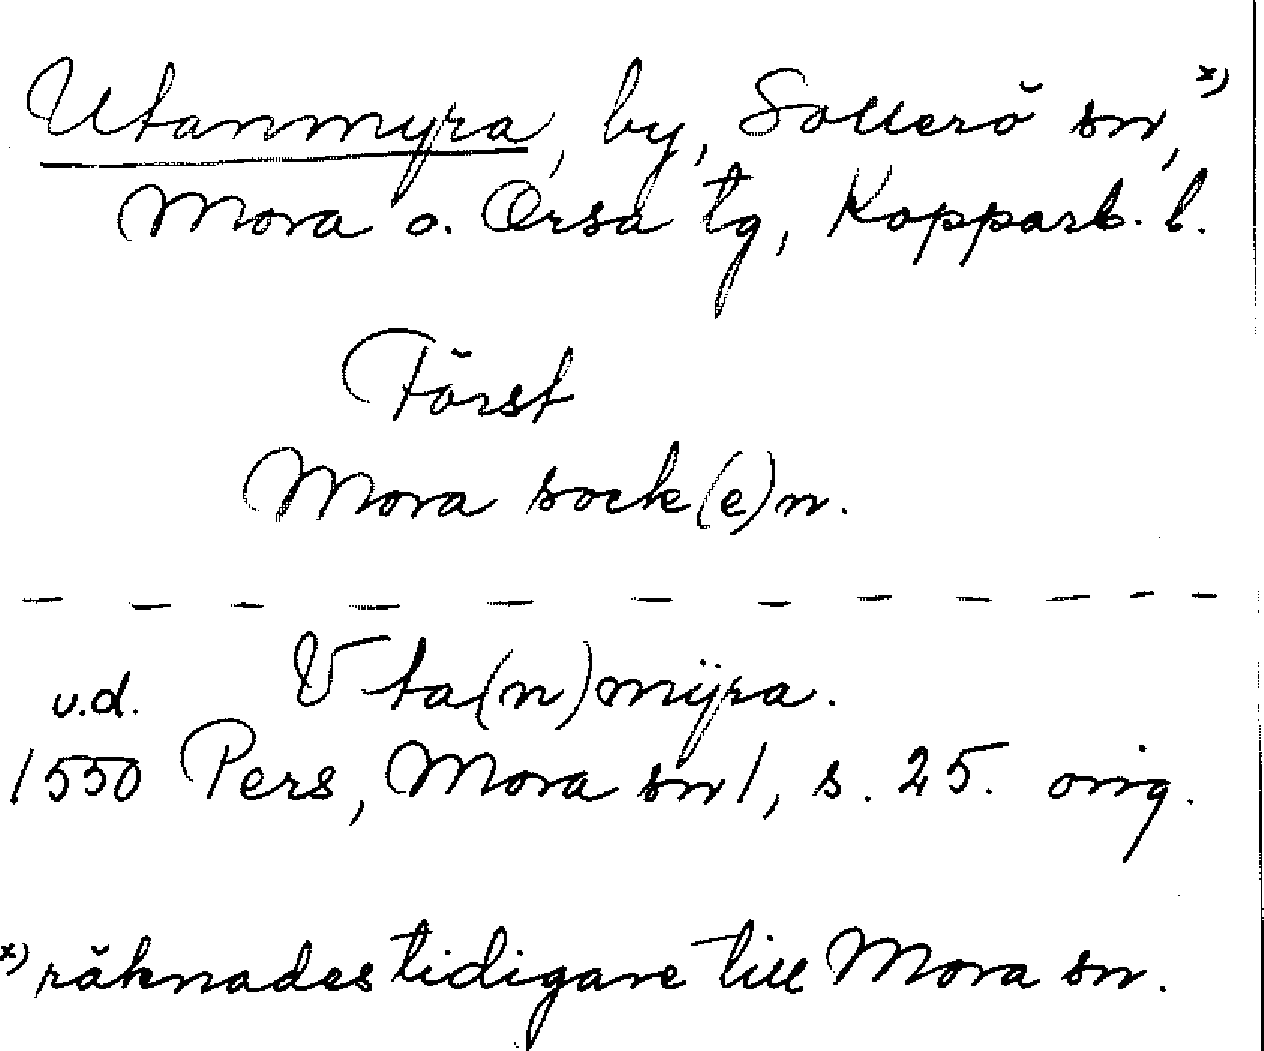 Utanmyra, by, Sollerö sn, x)
Mora o. Orsa tg, Kopparb. l.
Först
Mora sock(e)n.
— — — — — — — — — — — —
u.d. Vta(n)mÿra.
1550 Pers, Mora sn/, s. 25. orig.
x) räknades tidigare till Mora sn.